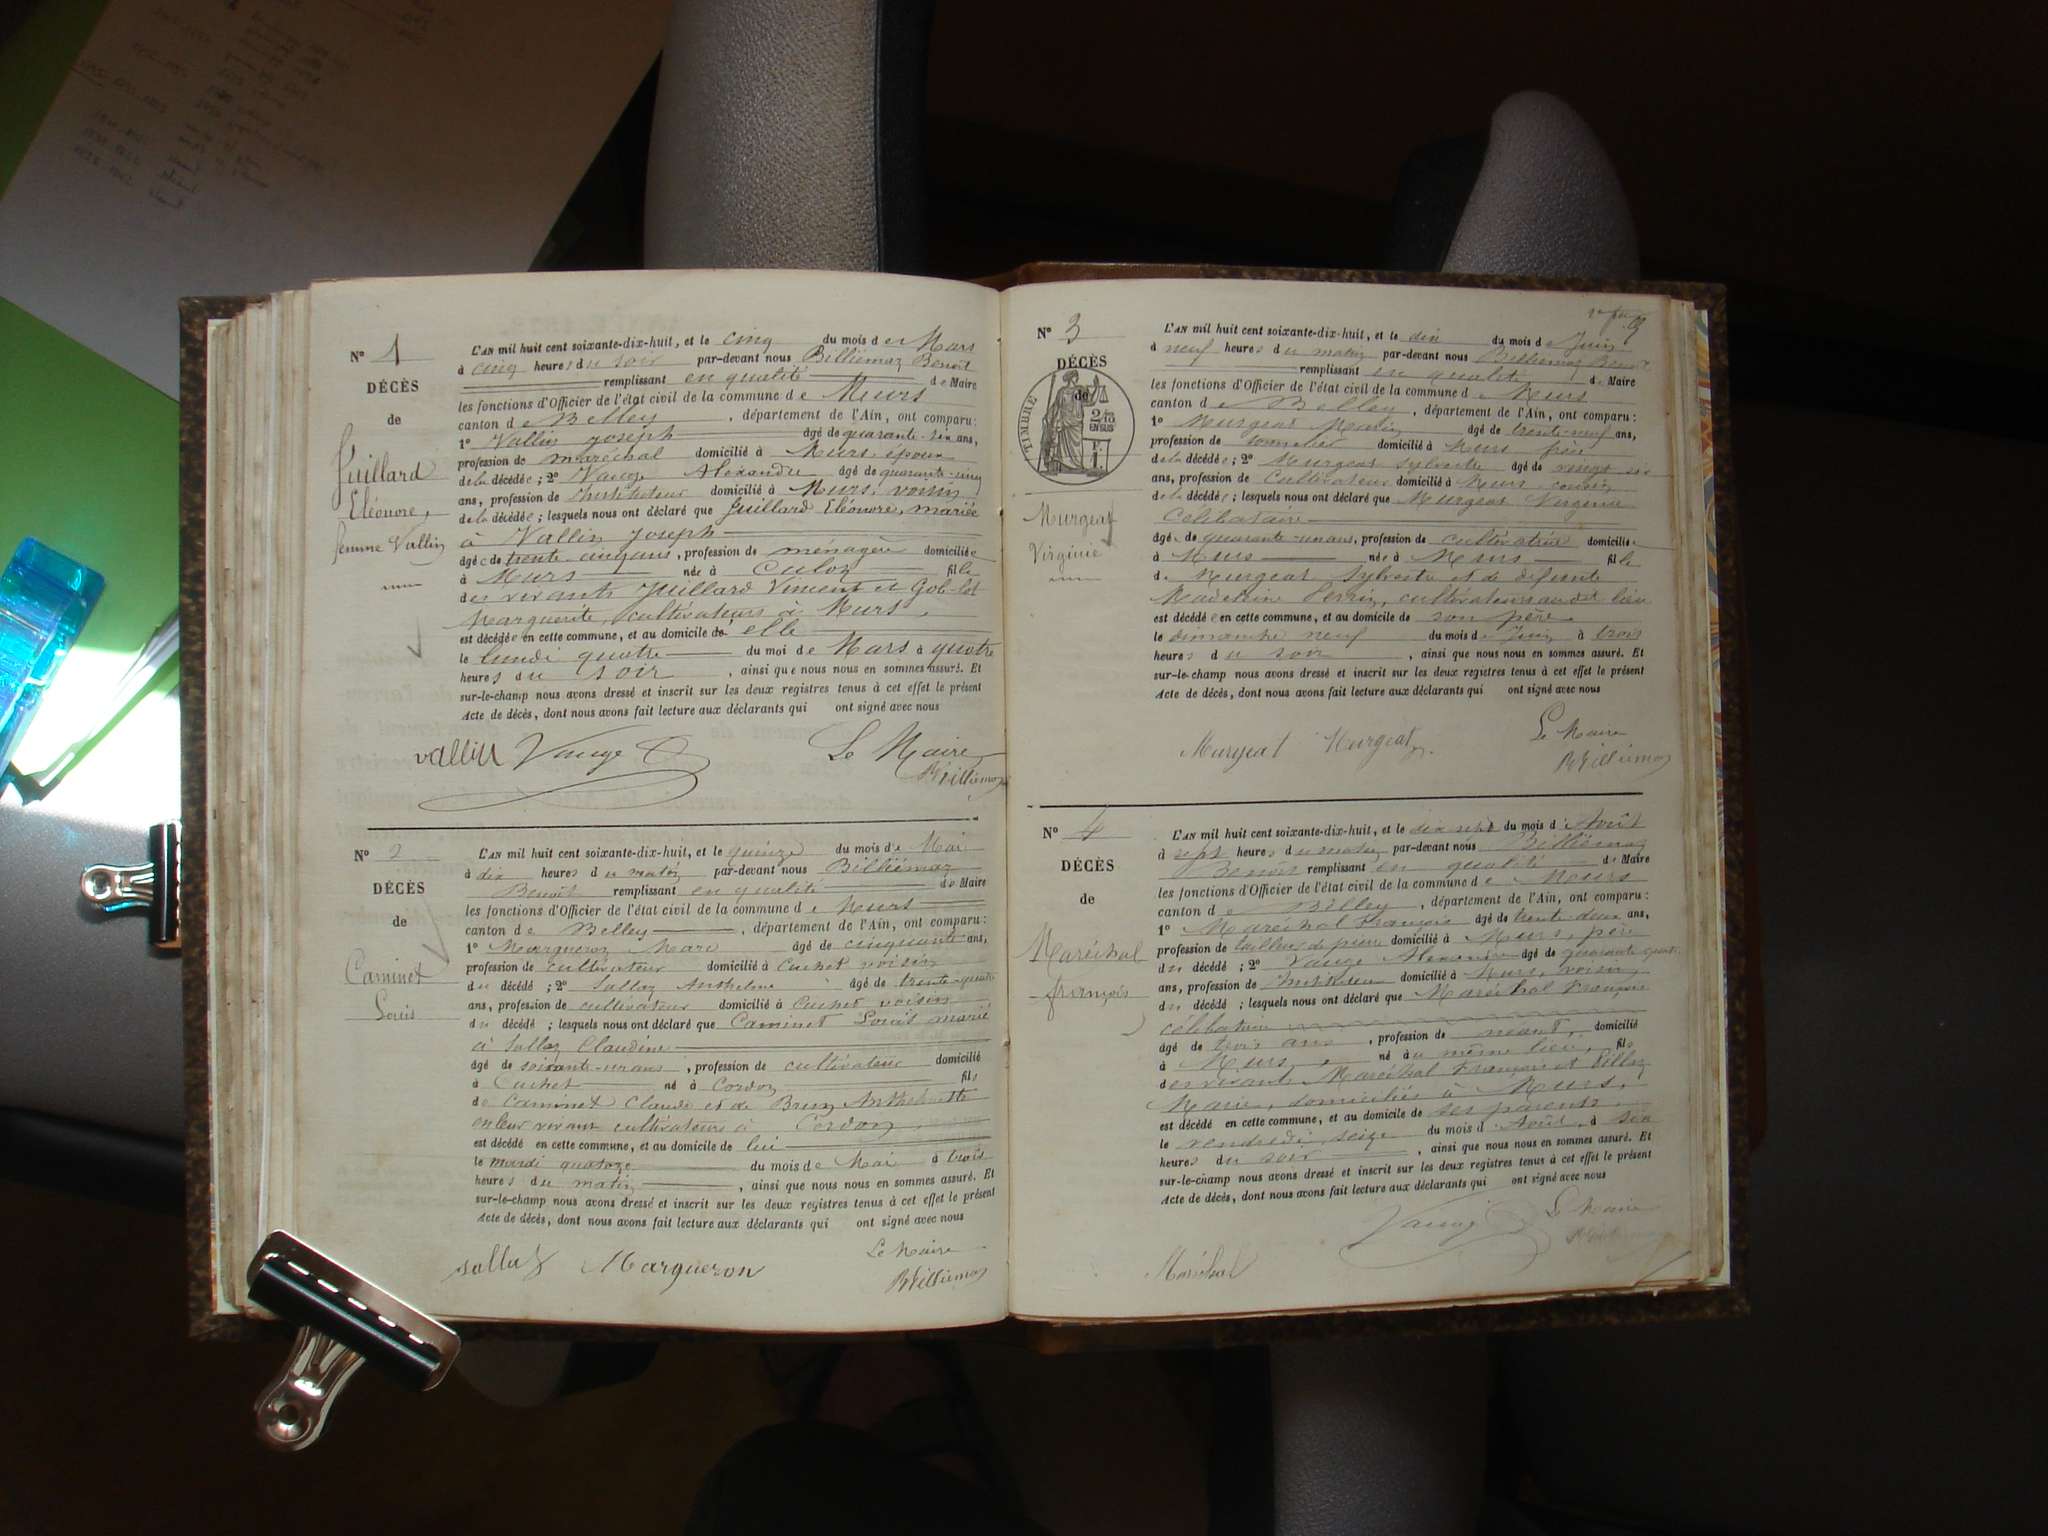 N° 1
DÉCÈS
de
Guillard
Eléonore,
femme Vallin
L'AN mil huit cent soixante-dix-huit, et le cinq du mois de Mars
à cinq heures du soir par-devant nous Billiémaz Benoît
remplissant en qualité de Maire
les fonctions d'Officier de l'état civil de la commune de Murs
canton de Belley, département de l'Ain, ont comparu :
1° Vallin Joseph âgé de quarante-six ans,
profession de maréchal domicilié à Murs, époux
de la décédée ; 2° Vauge Alexandre âgé de quarante-cinq
ans, profession de instituteur domicilié à Murs, voisin
de la décédée ; lesquels nous ont déclaré que Guillard Eléonore, mariée
à Vallin Joseph
âgée de trente cinq ans, profession de ménagère domiciliée
à Murs née à Culoz fille
des vivants Guillard Vincent et
Marguerite, cultivateurs à Murs,
est décédée en cette commune, et au domicile de elle
le lundi quatre du moi de Mars à quatre
heures du soir, ainsi que nous nous en sommes assuré. Et
sur-le-champ nous avons dressé et inscrit sur les deux registres tenus à cet effet le présent
Acte de décès, dont nous avons fait lecture aux déclarants qui ont signé avec nous
vallin Vauge Le Maire
Billiémaz
N° 2
DÉCÈS
de
Caminet
Louis
L'AN mil huit cent soixante-dix-huit, et le quinze du mois de Mai
à dix heures du matin par-devant nous Billiémaz
Benoît remplissant en qualité de Maire
les fonctions d'Officier de l'état civil de la commune de Murs
canton de Belley, département de l'Ain, ont comparu :
1° Margueron Marc âgé de cinquante ans,
profession de cultivateur domicilié à Cuchet voisin
du décédé ; 2° Sallaz Anthelme âgé de trente-quatre
ans, profession de cultivateur domicilié à Cuchet voisin
du décédé ; lesquels nous ont déclaré que Caminet Louis marié
à Sallaz Claudine
âgé de soixante-un ans, profession de cultivateur domicilié
à Cuchet né à Cordon fils
de Caminet Claude et de Brun
en leur vivant cultivateurs à Cordon,
est décédé en cette commune, et au domicile de lui
le mardi quatorze du mois de Mai à trois
heures du matin, ainsi que nous nous en sommes assuré. Et
sur-le-champ nous avons dressé et inscrit sur les deux registres tenus à cet effet le présent
Acte de décès, dont nous avons fait lecture aux déclarants qui ont signé avec nous
sallaz Margueron Le Maire
Billiémaz
N° 3
DÉCÈS
de
TIMBRE
2/10
EN SUS
Murgeat
Virginie
L'AN mil huit cent soixante-dix-huit, et le dix du mois de Juin
à neuf heures du matin par-devant nous Billiémaz Benoît
remplissant en qualité de Maire
les fonctions d'Officier de l'état civil de la commune de Murs
canton de Belley, département de l'Ain, ont comparu :
1° Murgeat âgé de trente-neuf ans,
profession de domicilié à Murs frère
de la décédée ; 2° Murgeat Sylvestre âgé de vingt six
ans, profession de Cultivateur domicilié à Murs cousin
de la décédée ; lesquels nous ont déclaré que Murgeat Virginie
Célibataire
âgée de quarante-un ans, profession de cultivatrice domiciliée
à Murs née à Murs fille
de Murgeat Sylvestre et de défunte
Madeleine Perrin, cultivateurs au dit lieu
est décédée en cette commune, et au domicile de son père
le dimanche neuf du mois de Juin à trois
heures du soir, ainsi que nous nous en sommes assuré. Et
sur-le-champ nous avons dressé et inscrit sur les deux registres tenus à cet effet le présent
Acte de décès, dont nous avons fait lecture aux déclarants qui ont signé avec nous
Murgeat Murgeat Le Maire
Billiémaz
N° 4
DÉCÈS
de
Maréchal
françois
L'AN mil huit cent soixante-dix-huit, et le dix sept du mois d'Août
à sept heures du matin par-devant nous Billiémaz
Benoît remplissant en qualité de Maire
les fonctions d'Officier de l'état civil de la commune de Murs
canton de Belley, département de l'Ain, ont comparu :
1° Maréchal François âgé de trente-deux ans,
profession de tailleur de pierre domicilié à Murs, père
du décédé ; 2° Vauge Alexandre âgé de quarante quatre
ans, profession de Instituteur domicilié à Murs, voisin
du décédé ; lesquels nous ont déclaré que Maréchal François
célibataire
âgé de trois ans, profession de néant, domicilié
à Murs, né au même lieu, fils
des vivants Maréchal François et
Marie, domiciliés à Murs,
est décédé en cette commune, et au domicile de ses parents
le vendredi seize du mois d'Août, à six
heures du soir, ainsi que nous nous en sommes assuré. Et
sur-le-champ nous avons dressé et inscrit sur les deux registres tenus à cet effet le présent
Acte de décès, dont nous avons fait lecture aux déclarants qui ont signé avec nous
Vauge Le Maire
Maréchal